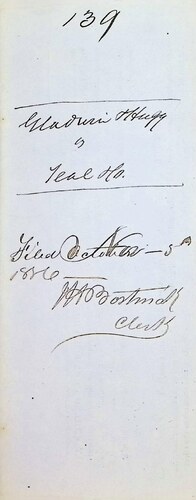 139
Gladwin & Hugg
vs
Teal & Co.
Filed Nov - 5th
1856
H Bostwick
Clerk